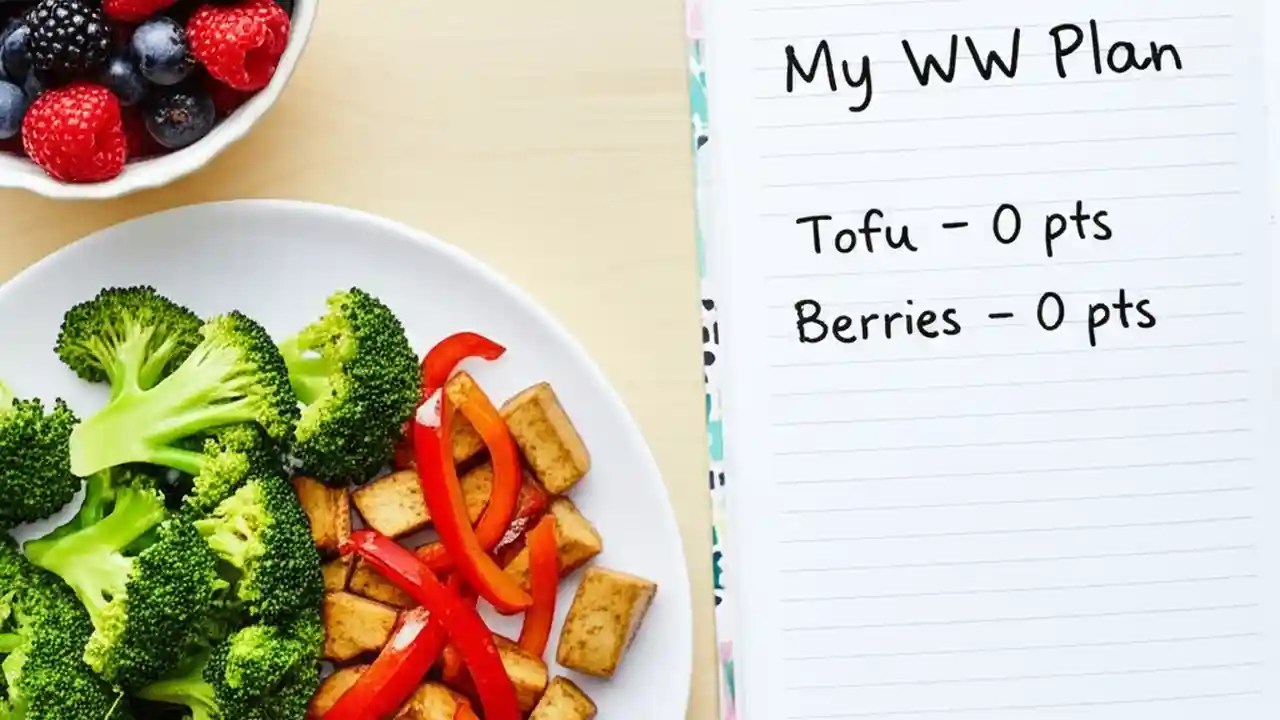 My WW Plan
Tofu - 0 pts
Berries - 0 pts